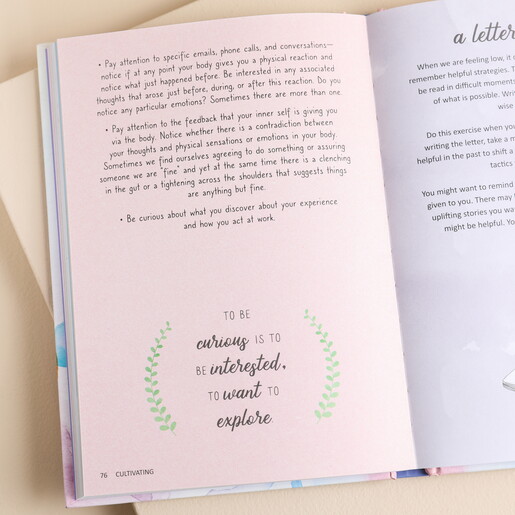 • Pay attention to specific emails, phone calls, and conversations—
notice if at any point your body gives you a physical reaction and
notice what just happened before. Be interested in any associated
thoughts that arose just before, during, or after this reaction. Do you
notice any particular emotions? Sometimes there are more than one.
• Pay attention to the feedback that your inner self is giving you
via the body. Notice whether there is a contradiction between
your thoughts and physical sensations or emotions in your body.
Sometimes we find ourselves agreeing to do something or assuring
someone we are "fine" and yet at the same time there is a clenching
in the gut or a tightening across the shoulders that suggests things
are anything but fine.
• Be curious about what you discover about your experience
and how you act at work.
TO BE
curious IS TO
BE interested,
TO want TO
explore.
76 CULTIVATING
a letter
When we are feeling low, it
remember helpful strategies. T
be read in difficult moments
of what is possible. Writ
wise
Do this exercise when you
writing the letter, take a m
helpful in the past to shift a
tactics
You might want to remind
given to you. There may
uplifting stories you wan
might be helpful. Yo